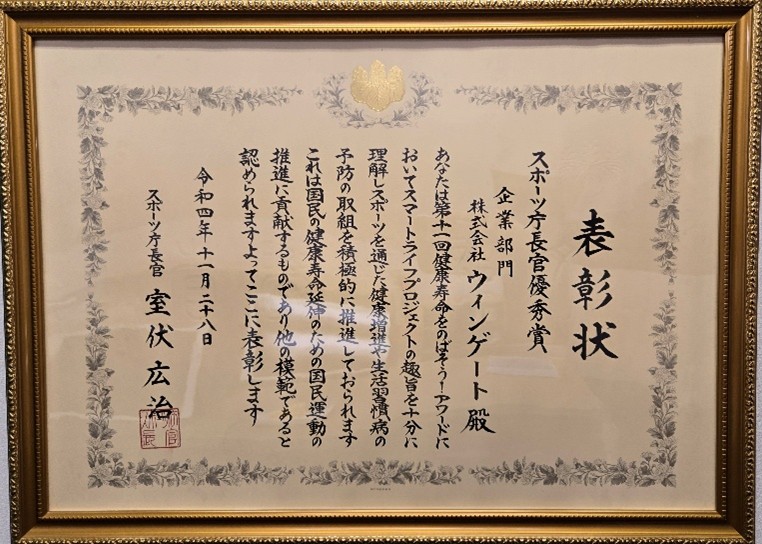 表彰状
スポーツ庁長官優秀賞
企業部門
株式会社 ウィンゲート 殿
あなたは第十一回健康寿命をのばそう!アワードに
おいてスマートライフプロジェクトの趣旨を十分に
理解しスポーツを通じた健康増進や生活習慣病の
予防の取組を積極的に推進しておられます
これは国民の健康寿命延伸のための国民運動の
推進に貢献するものであり他の模範であると
認められますよってここに表彰します
令和四年十一月二十八日
スポーツ庁長官 室伏広治